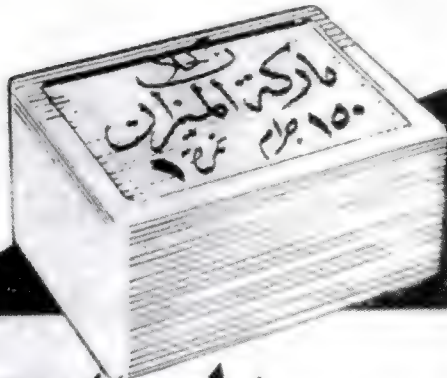 ماركة الميزان
١٥٠ جرام نمرة ١